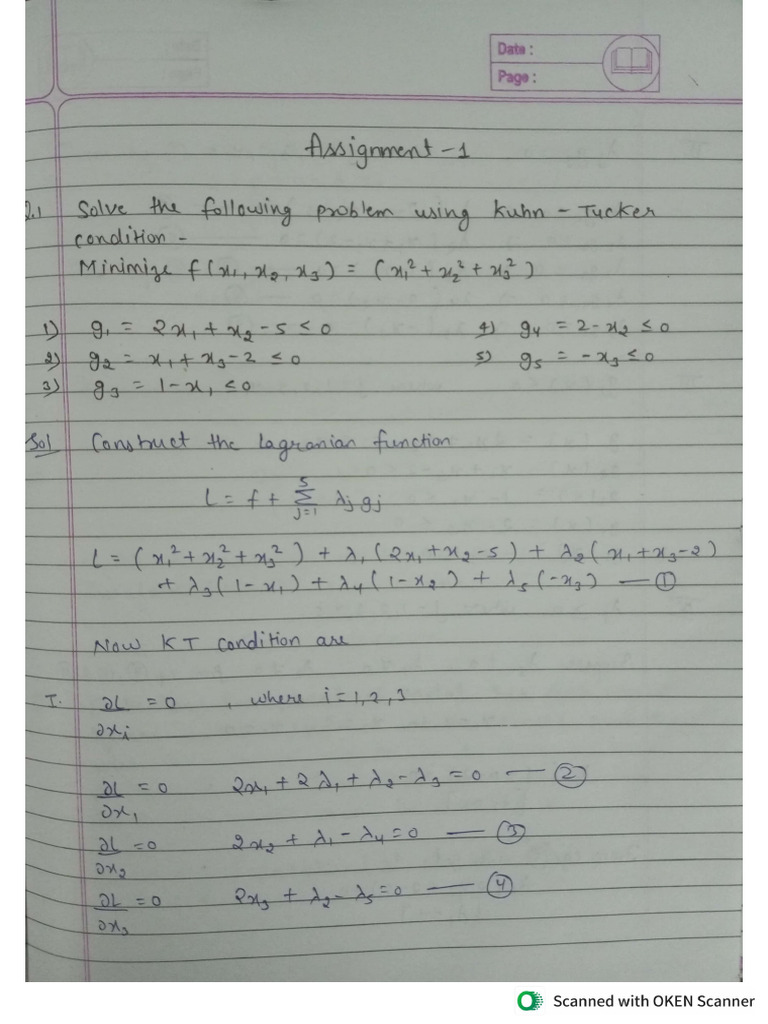 Date :
Page :
Assignment-1
Q.1 Solve the following problem using Kuhn-Tucker
condition -
Minimize f(x₁, x₂, x₃) = (x₁² + x₂² + x₃²)
1) g₁ = 2x₁ + x₂ - 5 ≤ 0 4) g₄ = 2 - x₂ ≤ 0
2) g₂ = x₁ + x₃ - 2 ≤ 0 5) g₅ = -x₃ ≤ 0
3) g₃ = 1 - x₁ ≤ 0
Sol Construct the Lagranian function
L = f + Σ_{j=1}^{5} λj gj
L = (x₁² + x₂² + x₃²) + λ₁(2x₁ + x₂ - 5) + λ₂(x₁ + x₃ - 2)
+ λ₃(1 - x₁) + λ₄(1 - x₂) + λ₅(-x₃) — ①
Now KT condition are
I. ∂L/∂xᵢ = 0 , where i = 1, 2, 3
∂L/∂x₁ = 0 2x₁ + 2λ₁ + λ₂ - λ₃ = 0 — ②
∂L/∂x₂ = 0 2x₂ + λ₁ - λ₄ = 0 — ③
∂L/∂x₃ = 0 2x₃ + λ₂ - λ₅ = 0 — ④
Scanned with OKEN Scanner